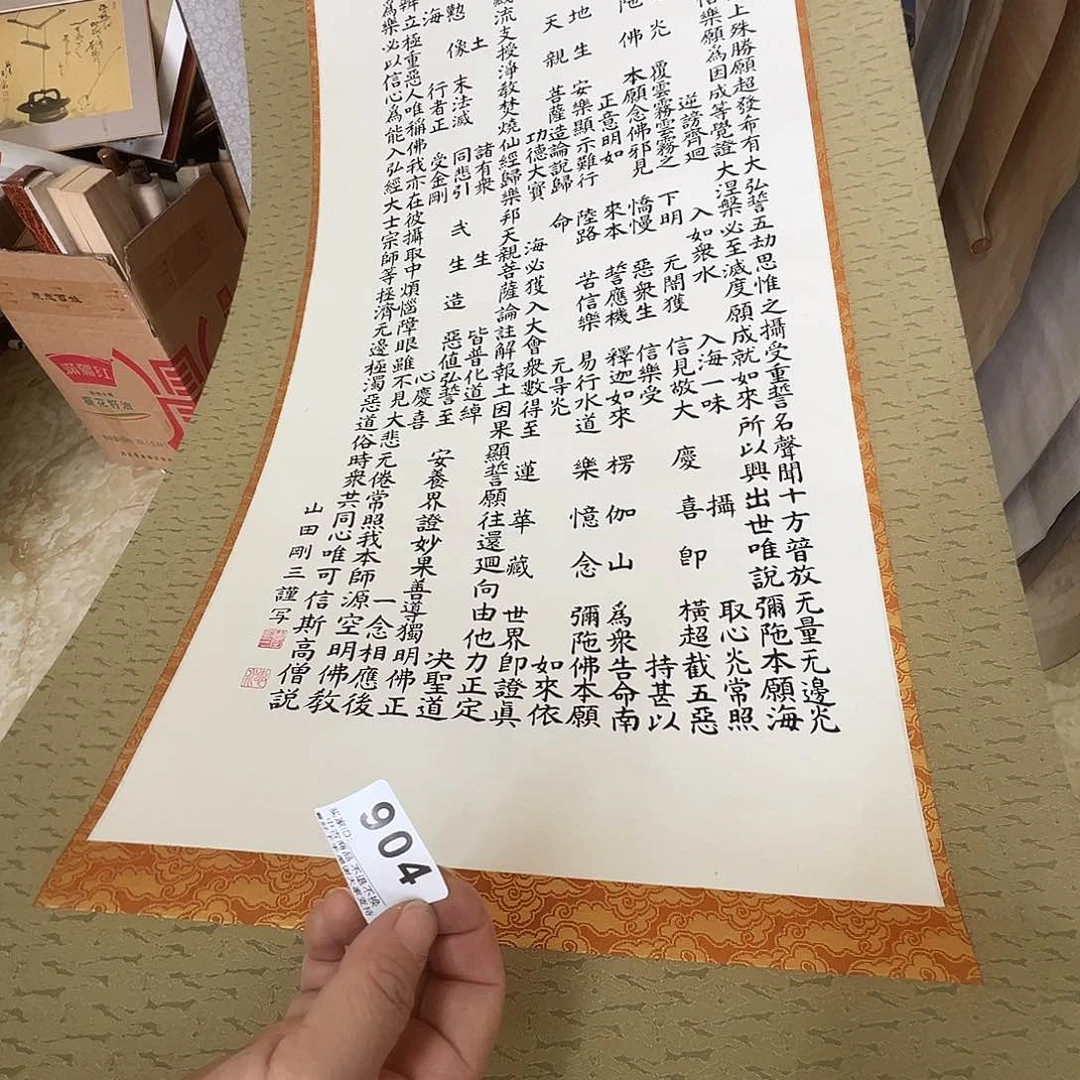 上殊勝願超發希有大弘誓五劫思惟之攝受重誓名聲聞十方普放无量无邊光
信樂願為因成等覺證大涅槃必至滅度願成就如來所以興出世唯說彌陁本願海
逆謗齊迴 入如衆水 入海一味 攝 取心光常照
光 覆雲霧雲霧之 下明 无闇獲 信見敬大 慶喜即 橫超截五惡
陁佛 本願念佛邪見 憍慢 惡衆生 信樂受 持甚以
正意明如 來本 誓應機 釋迦如來 楞伽山 為衆告命南
地生 安樂顯示難行 陸路 苦信樂 易行水道 樂憶念 彌陁佛本願
天親 菩薩造論說歸 命 无导光 如來依
功德大寳 海必獲入大會衆數得至 蓮華藏 世界即證眞
藏流支授淨教焚燒仙經歸樂邦天親菩薩論註解報土因果顯誓願往還迴向由他力正定
土 諸有衆 生 皆普化道綽 决聖道
懃像 末法滅 同悲引 弌生造 惡値弘誓至 安養界證妙果善導獨明佛正
海 行者正 受金剛 心慶喜 一念相應後
辨立極重惡人唯稱佛我亦在彼攝取中煩惱障眼雖不見大悲无倦常照我本師源空明佛教
為樂必以信心為能入弘經大士宗師等拯濟无邊極濁惡道俗時衆共同心唯可信斯高僧説
山田剛三謹写
904